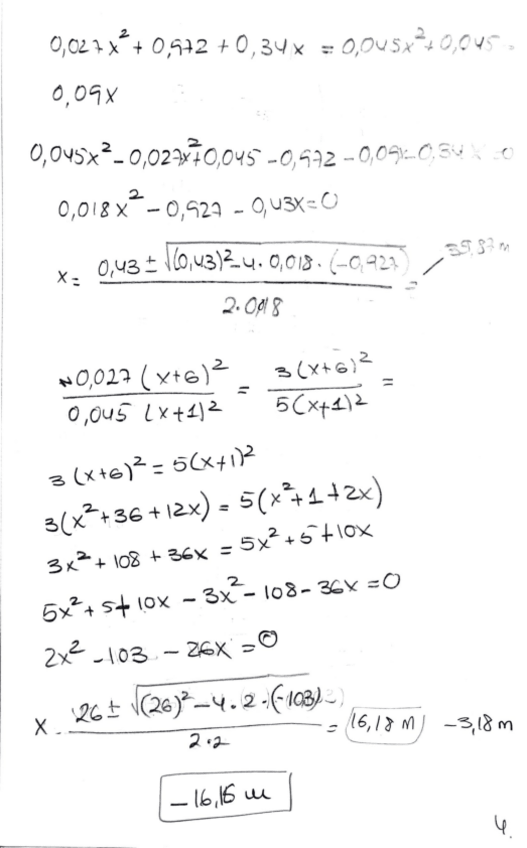 0,027x² + 0,972 + 0,34x = 0,045x² + 0,045 +
0,09x
0,045x² - 0,027x² + 0,045 - 0,972 - 0,09x - 0,34x = 0
0,018x² - 0,927 - 0,43x = 0
x = (0,43 ± √((0,43)² - 4. 0,018. (-0,927))) / 2.0,018 = 35,87 m
0,027 (x+6)² / 0,045 (x+1)² = 3(x+6)² / 5(x+1)² =
3(x+6)² = 5(x+1)²
3(x² + 36 + 12x) = 5(x² + 1 + 2x)
3x² + 108 + 36x = 5x² + 5 + 10x
5x² + 5 + 10x - 3x² - 108 - 36x = 0
2x² - 103 - 26x = 0
x = (26 ± √((26)² - 4.2.(-103))) / 2.2 = 16,18 m - 3,18 m
- 16,16 m
4.